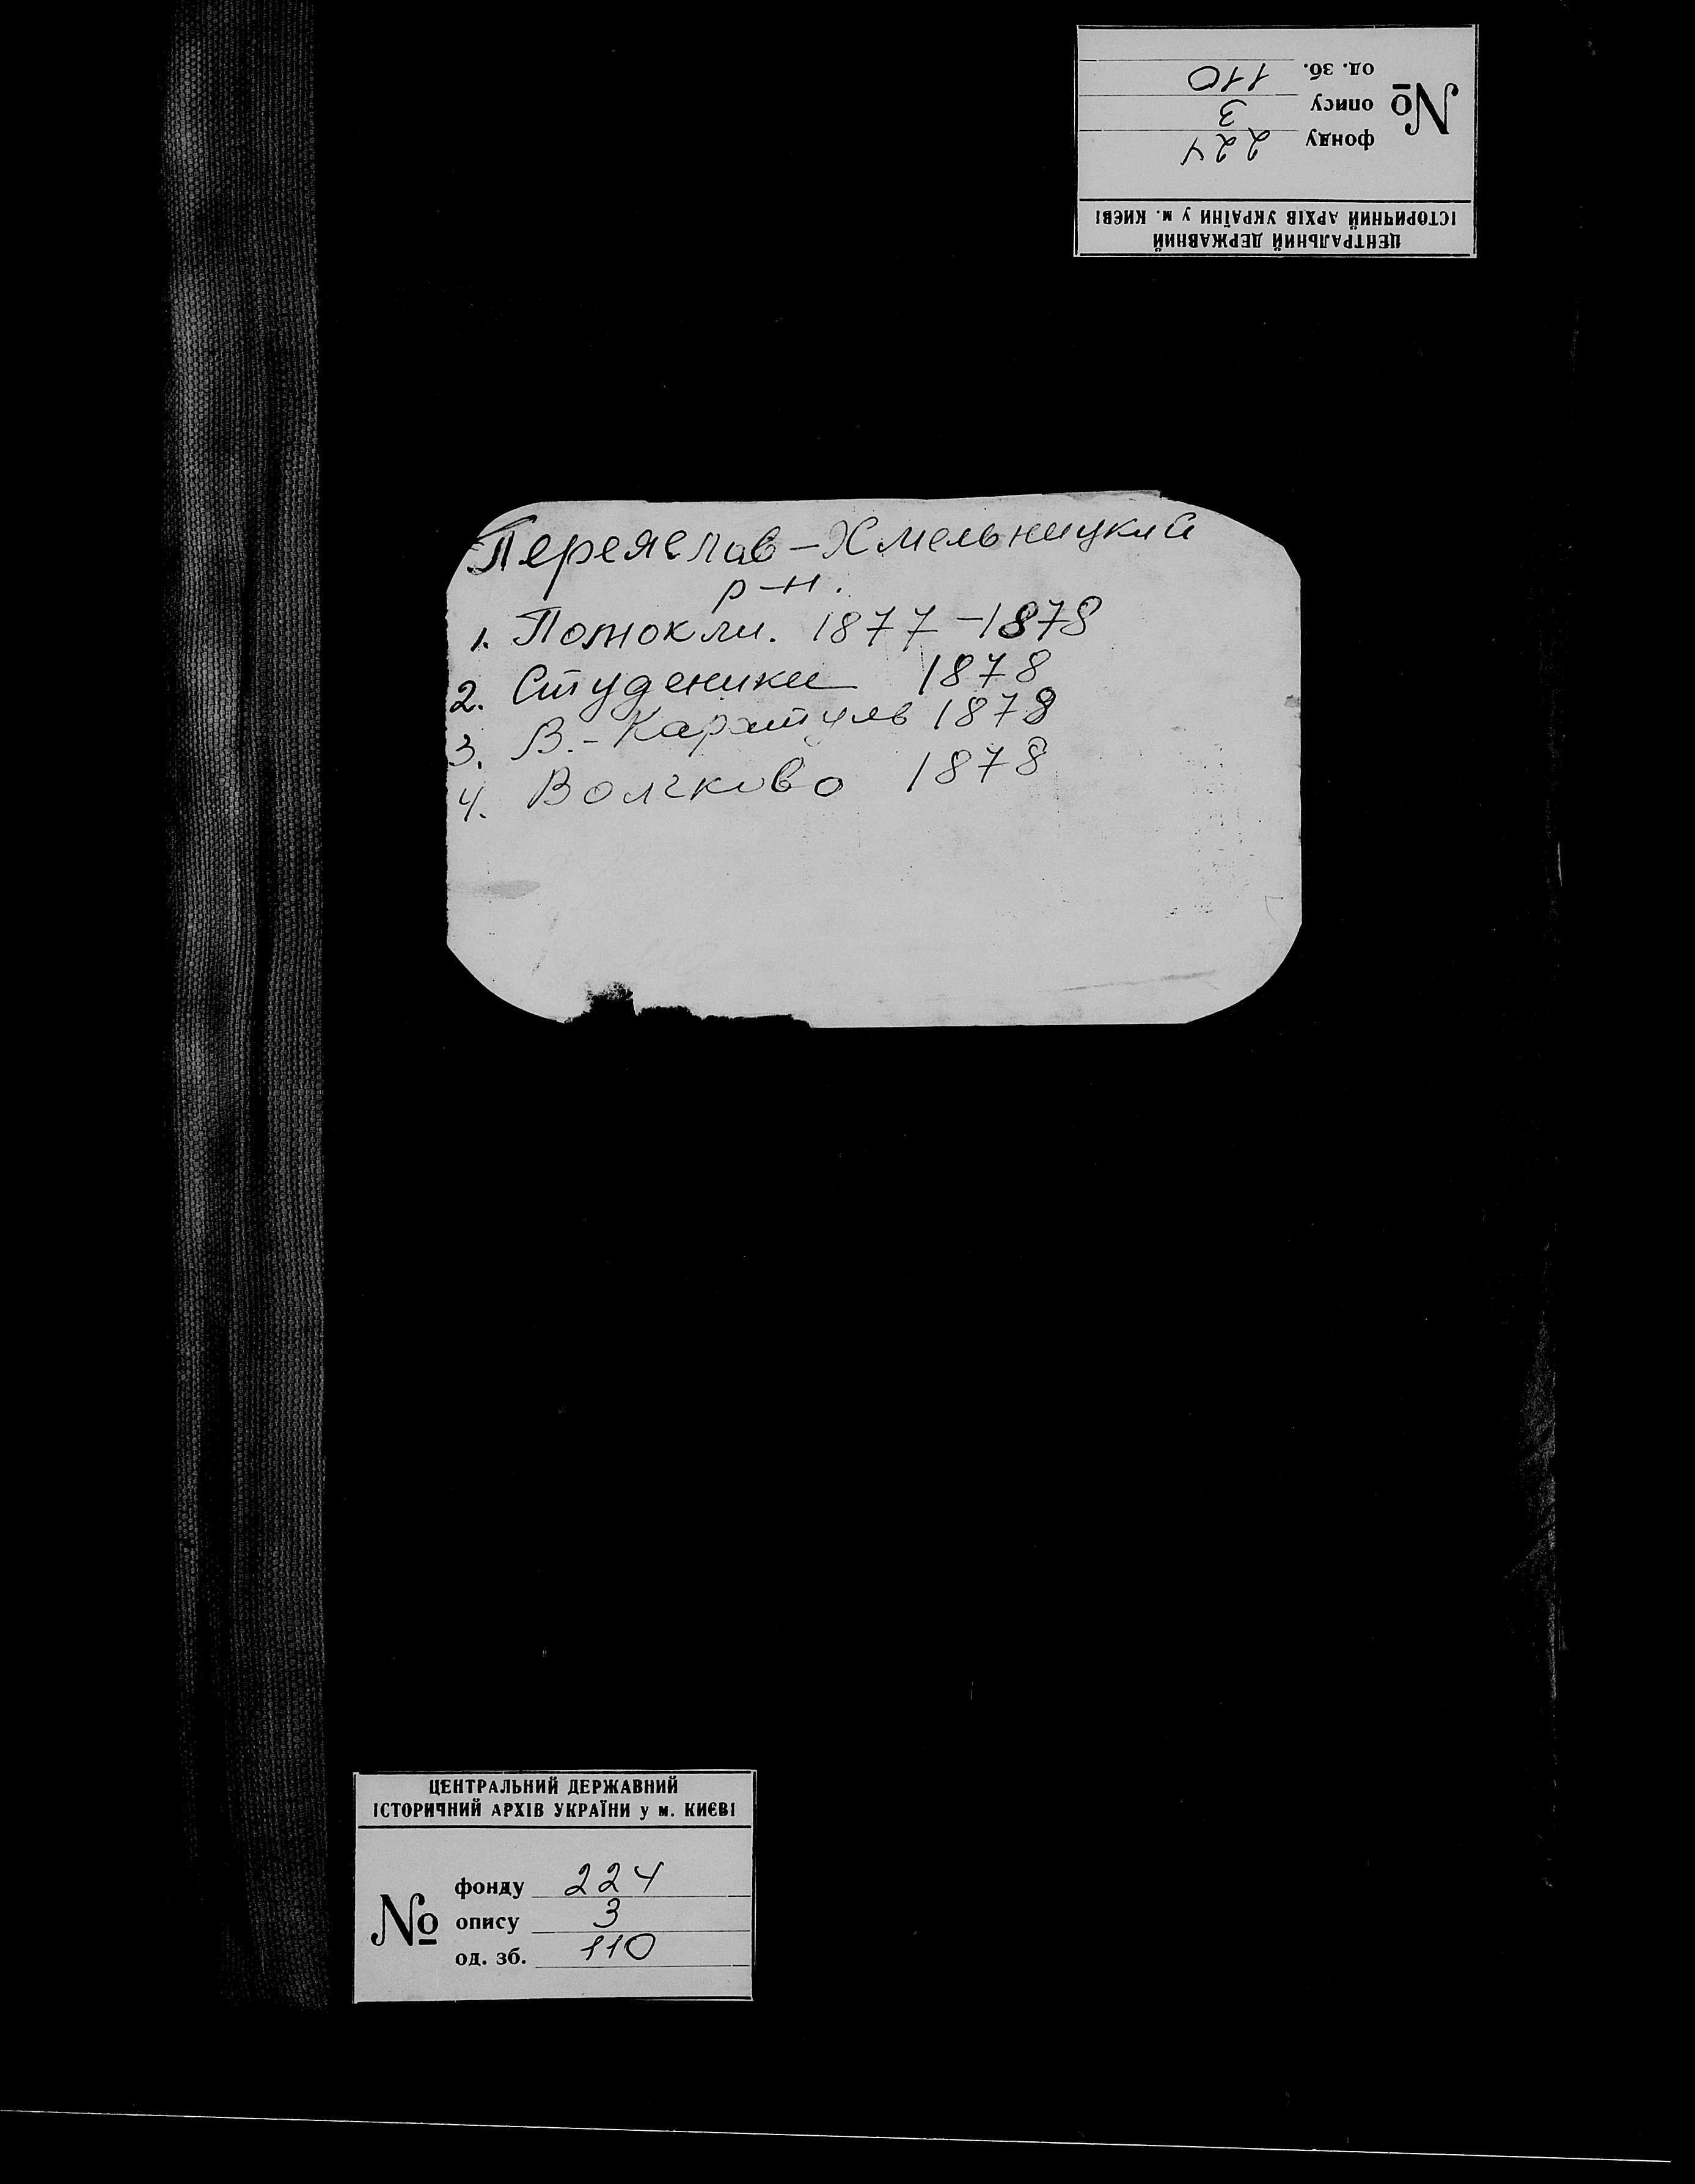 ЦЕНТРАЛЬНИЙ ДЕРЖАВНИЙ
ІСТОРИЧНИЙ АРХІВ УКРАЇНИ у м. КИЄВІ
№
фонду 224
опису 3
од. зб. 110
Переяслав-Хмельницкий
р-н.
1. Потокли. 1877-1878
2. Студеники 1878
3. В.-Каратуль 1878
4. Волчково 1878
ЦЕНТРАЛЬНИЙ ДЕРЖАВНИЙ
ІСТОРИЧНИЙ АРХІВ УКРАЇНИ у м. КИЄВІ
№
фонду 224
опису 3
од. зб. 110